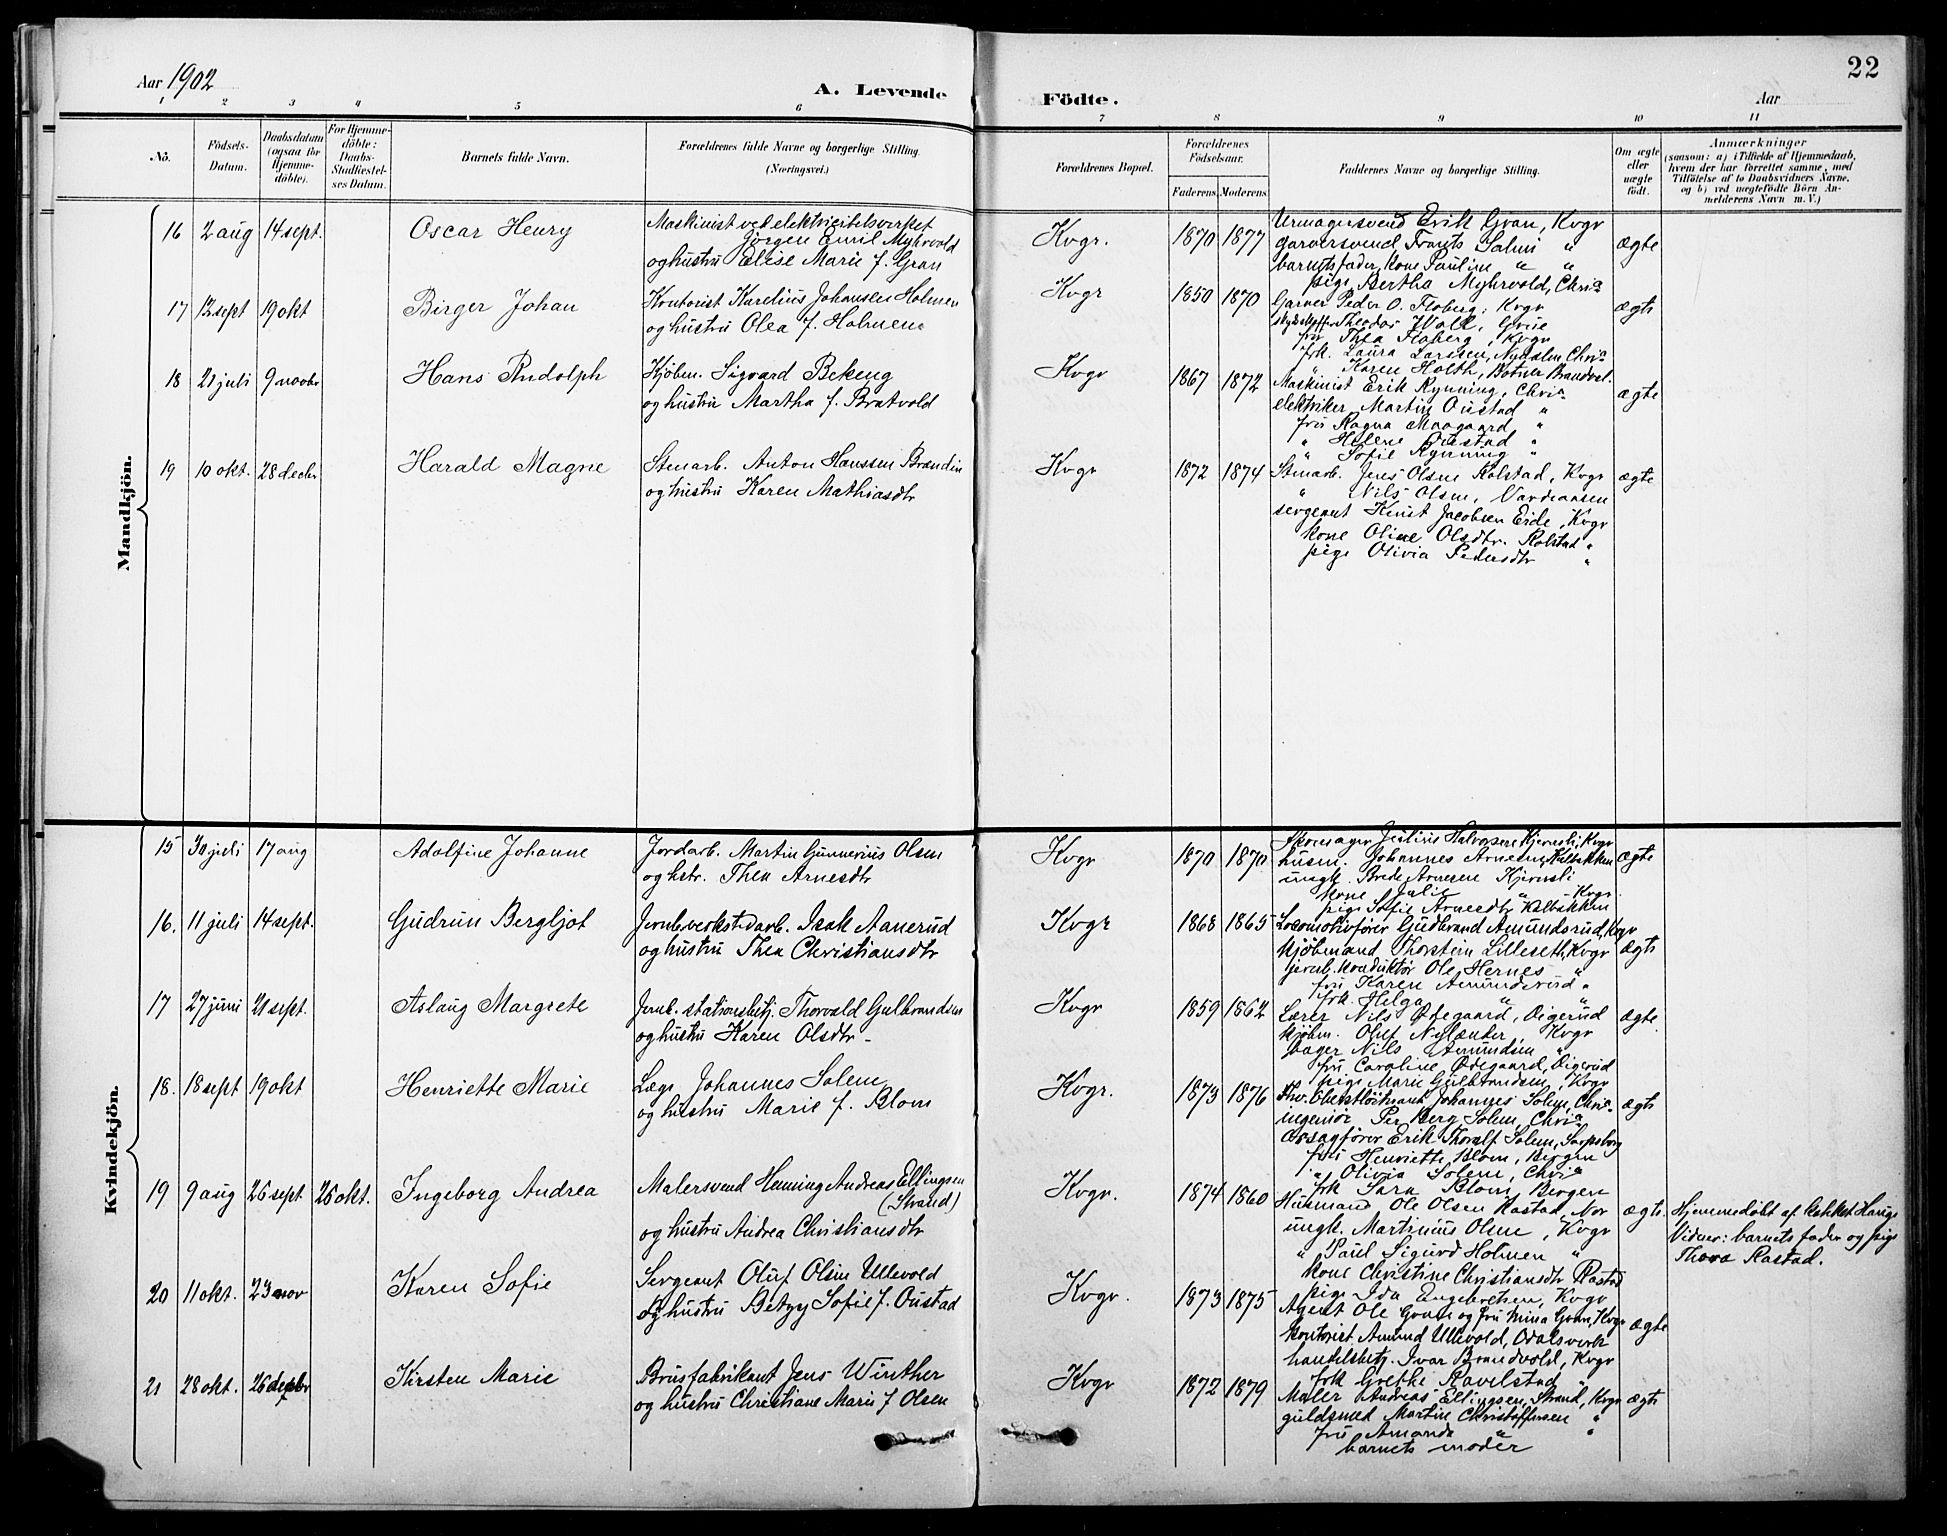 Aar 1902
A. Levende Födte.
Aar
22
1 2 3 4 5 6 7 8 9 10 11
No.
Födsels-Datum.
Daabsdatum (ogsaa for Hjemme-döbte).
For Hjemme-döbte: Daabs-Stadfæstel-ses Datum.
Barnets fulde Navn.
Forældrenes fulde Navne og borgerlige Stilling.
(Næringsvei.)
Forældrenes Bopæl.
Forældrenes Födselsaar.
Faderens Moderens
Faddernes Navne og borgerlige Stilling.
Om ægte eller uægte födt.
Anmærkninger
(saasom: a) i Tilfælde af Hjemmedaab,
hvem der har forrettet samme, med
Tilföielse af to Daabsvidners Navne,
og b) ved uægtefödte Börn An-
melderens Navn m. V.)
Mandkjön.
16 2 aug 14 sept. Oscar Henry
Maskinist ved elektricitetsverket
Jörgen Emil Myhrvold
og hustru Elise Marie f. Gran
Kvgr. 1870 1877
Urmagersvend Erik Gran, Kvgr
garversvend Frants Salmi "
barnets fader, kone Pauline " "
pige Bertha Myhrvold, Chria
ægte
17 12 sept 19 okt Birger Johan
Kontorist Karelius Johansen Holmen
og hustru Olea f. Holmen
Kvgr 1850 1870
Garver Peder O. Floberg, Kvgr
Theodor Wall, Grue
fru Thea Floberg, Kvgr
frk. Laura Larssen, Nydalen, Chria
" Karen Holth, Brandval.
ægte
18 21 juli 9 novbr Hans Rudolph
Kjöbm. Sigvard Bekeng
og hustru Martha f. Bratvold
Kvgr 1867 1872
Maskinist Erik Rynning, Chria
elektriker Martin Oustad "
fru Ragna Moagaard "
" Helene Oustad "
" Sofie Rynning "
ægte
19 10 okt. 28 decbr Harald Magne
Stenarb. Anton Hanssen Brandin
og hustru Karen Mathiasdtr
Kvgr 1872 1874
Stenarb. Jens Olsen Rolstad, Kvgr
" Nils Olsen, Vardeaasen
sergeant Knut Jacobsen Eide, Kvgr
kone Oline Olsdtr. Rolstad "
pige Olivia Pedersdtr "
ægte
Kvindekjön.
15 30 juli 17 aug Adolfine Johanne
Jordarb. Martin Gunnerius Olsen
og hstr. Thea Arnesdtr
Kvgr 1870 1870
Skomager Julius Halvorsen Kjernsli, Kvgr
husm. Johannes Arnesen, Kalbakken
ungk. Brede Arnesen Kjernsli
kone Julie " Kvgr.
pige Sofie Arnesdtr Kalbakken
ægte
16. 11 juli 14 sept. Gudrun Bergljot
Jernb.verkstedarb. Isak Aanerud
og hustru Thea Christiansdtr
Kvgr 1868 1865
Locomotivförer Gudbrand Amundsrud, Kvgr
Kjöbmand Thorstein Lilleseth, Kvgr
jernb. konduktör Ole Hernes "
fru Karen Amundsrud "
frk. Helga " "
ægte
17 27 juni 21 sept. Aslaug Margrete
Jernb. stationsbetj. Thorvald Gulbrandsen
og hustru Karen Olsdtr -
Kvgr 1859 1862
Lærer Nils Ödegaard, Digerud
Kjöbm. Oluf Nylænder, Kvgr
bager Nils Amundsen "
fru Caroline Ödegaard, Digerud
pige Marie Gulbrandsen, Kvgr
ægte.
18. 18 sept 19 okt Henriette Marie
Læge Johannes Solem
og hustru Marie f. Blom
Kvgr. 1873 1876
Fhv. Oberstlöitnant Johannes Solem, Chria
ingeniör Per Berg Solem, Chria
Overretssagförer Erik Thoralf Solem, Sarpsborg
fru Henriette Blom, Bergen
" Olivia Solem, Chria
frk Sara Blom, Bergen
ægte
19 9 aug 26 sept 26 okt. Ingeborg Andrea
Malersvend Henning Andreas Ellingsen
(Strand)
og hustru Andrea Christiansdtr
Kvgr. 1874 1860
Husmand Ole Olsen Rastad, Nor
ungk. Martinius Olsen, Kvgr
" Paul Sigurd Holmen "
kone Christine Christiansdtr Rastad
pige Ida Engebretsen, Kvgr
ægte.
Hjemmedöbt af Hauge
Vidner: barnets fader og pige
Thora Rastad.
20 11 okt. 23 nov Karen Sofie
Sergeant Oluf Olsen Ullevold
og hustru Betzy Sofie f. Oustad
Kvgr. 1873 1875
Agent Ole Gran og fru Mina Gran, Kvgr
kontorist Amund Ullevold, Odalsverk
handelsbetj. Ivar Brandvold, Kvgr
frk Grethe Ravelstad "
ægte
21 28 okt. 26 decbr Kirsten Marie
Brusfabrikant Jens Winther
og hustru Christiane Marie f Olsen
Kvgr 1872 1879
Maler Andreas Ellingsen Strand, Kvgr
guldsmed Martin Christoffersen "
fru Amanda " "
barnets moder
ægte